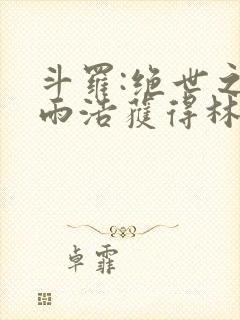 斗羅:绝世之
雨浩獲得林
卓霏